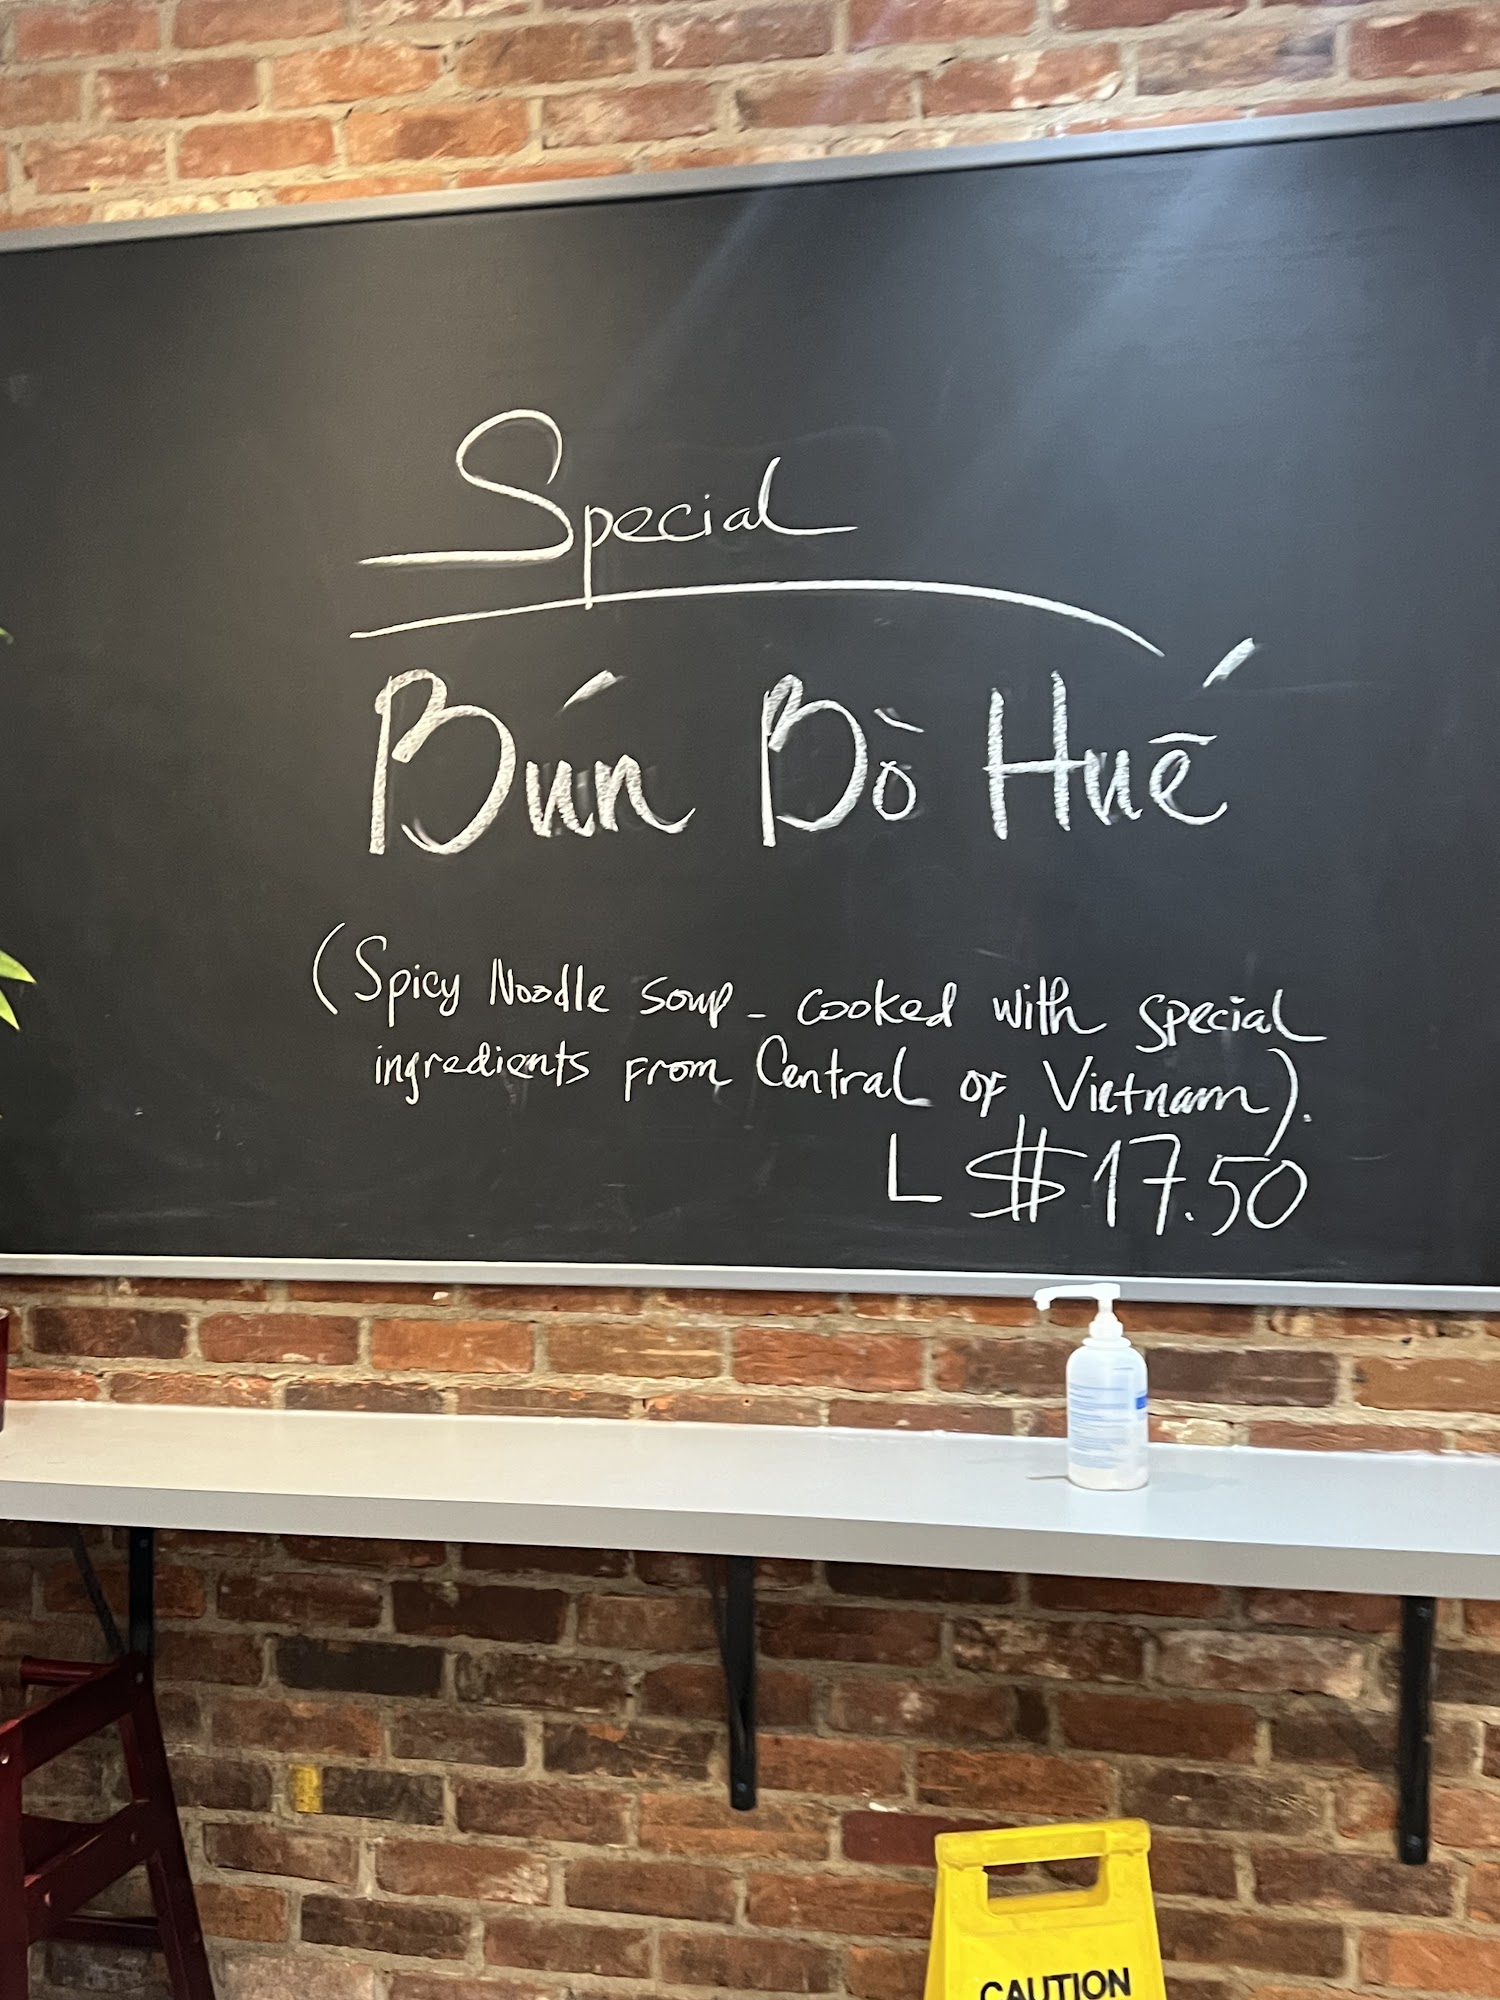 Special
Bún Bò Huế
(Spicy Noodle soup - cooked with special
ingredients from Central of Vietnam).
L $17.50
CAUTION